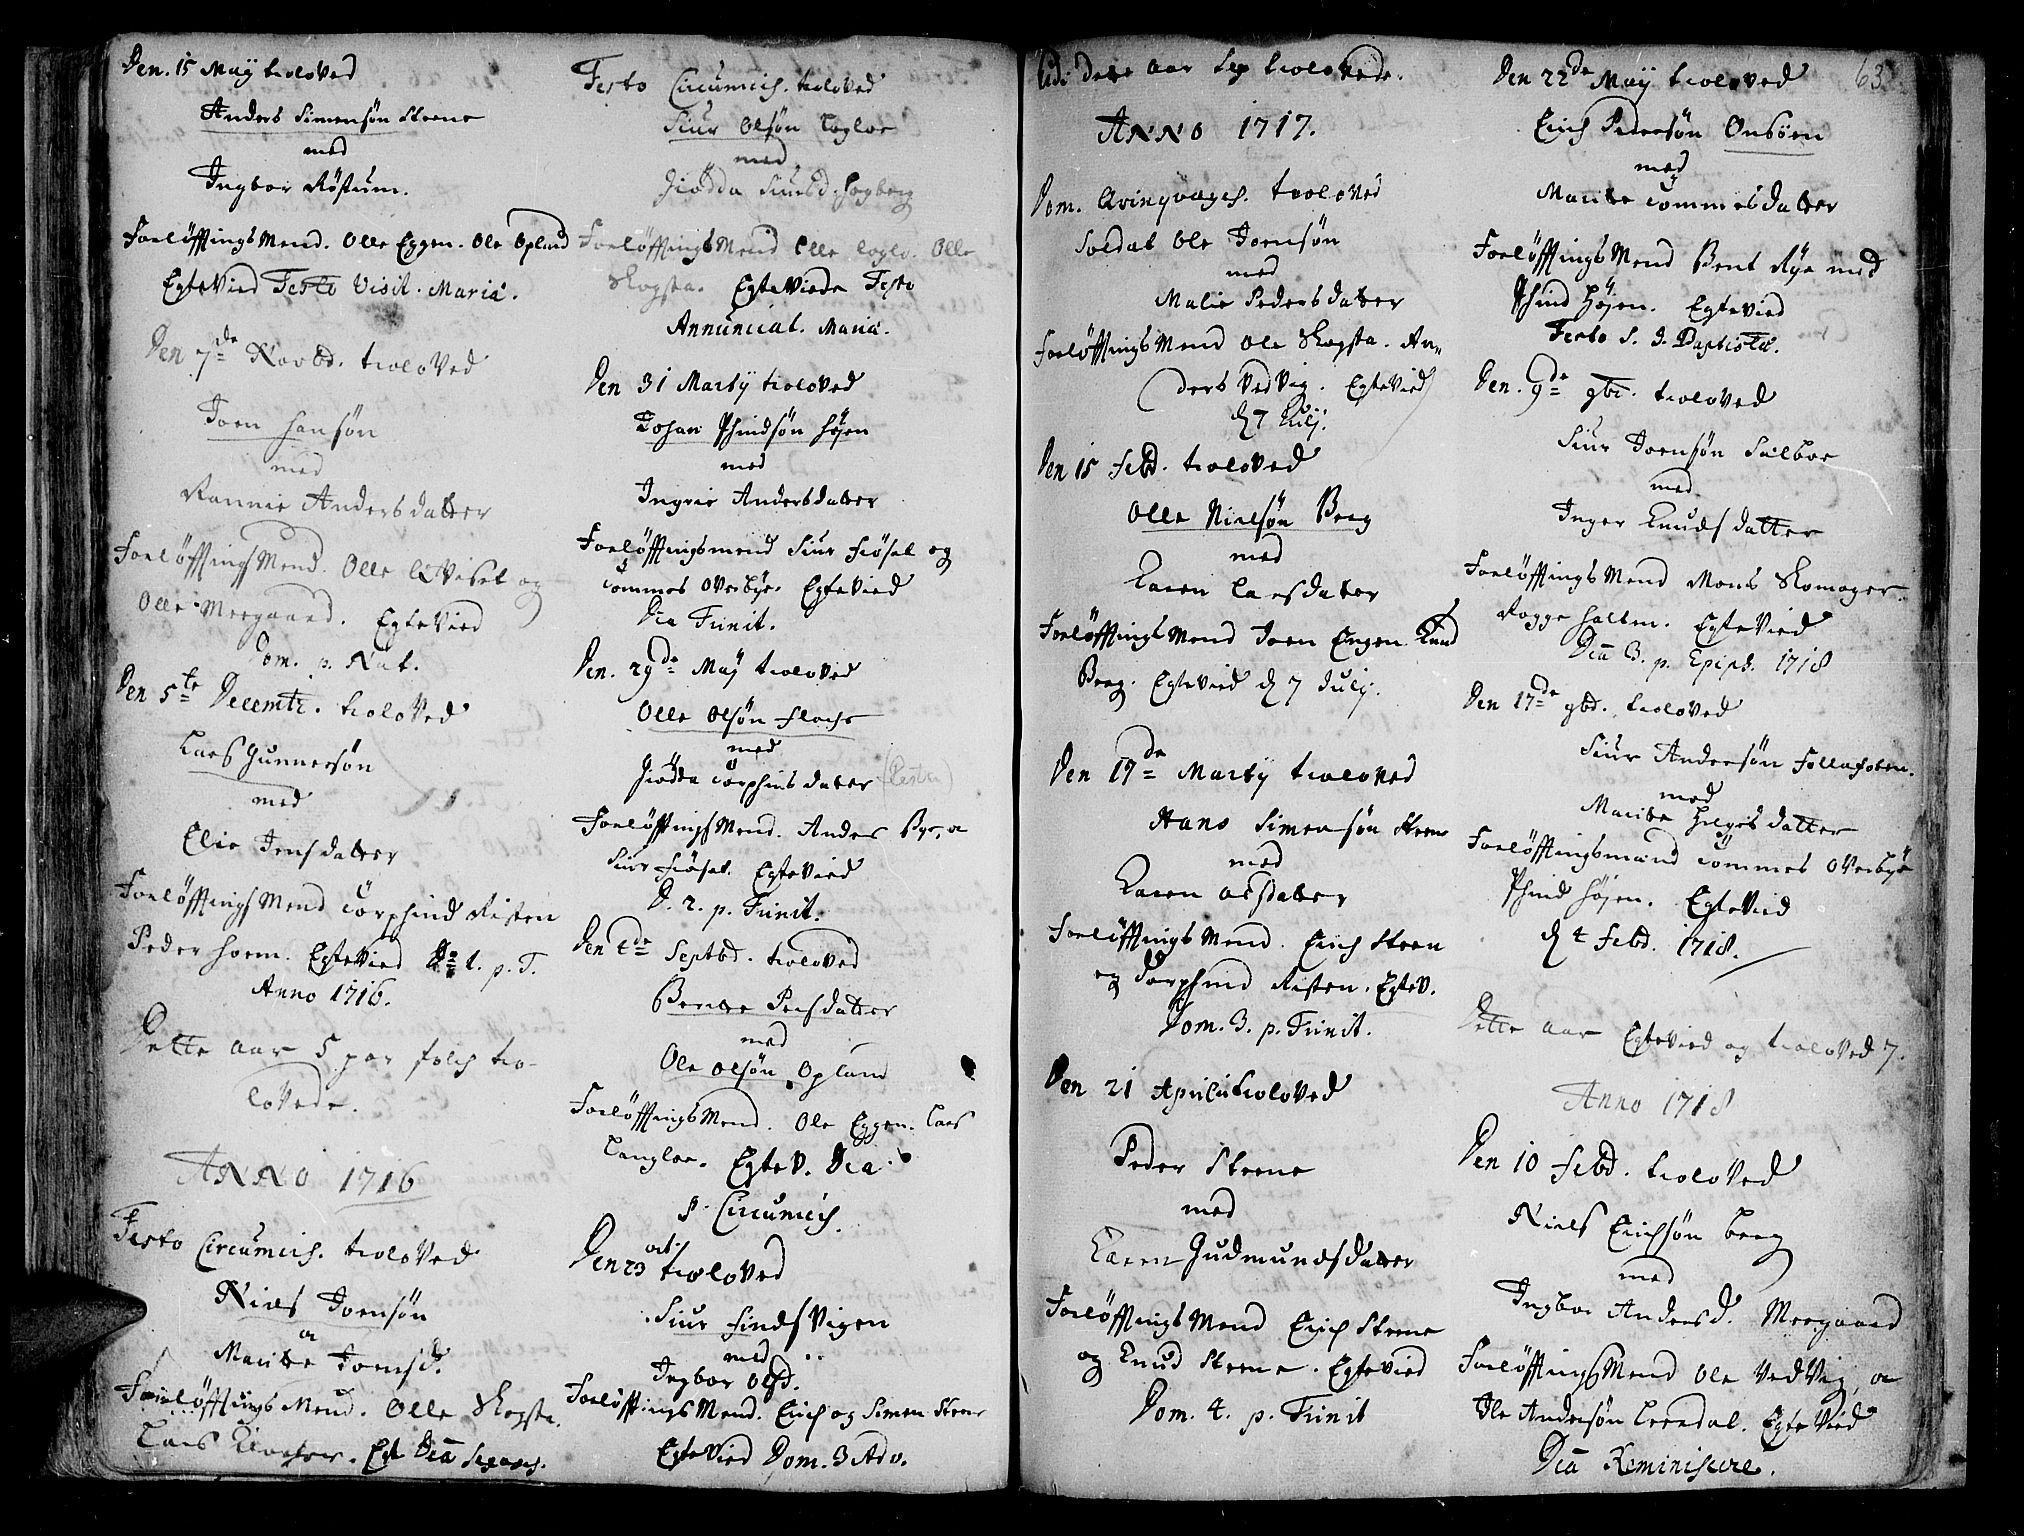 Den. 15 Maÿ troloved
Anders Simensøn Steene
med
Ingbor Røstum.
Forløfftings Mend. Olle Eggen. Ole Opland
Egtevied Festo Visit. Mariæ.
Den 7de Novbd. troloved
Joen Hansøn
med
Rannie Andersdatter
Forløfftings Mend. Olle Qvisel og
Olle Moegaard. Egtevied
Dom. p. Nat.
Den 5te Decembr. troloved
Lars Gunnersøn
med
Elie Jensdatter
Forløfftings Mend Torphind Risten
Peder Hoem. Egtevied 1. p. T.
Anno 1716.
Dette aar 5 par folch tro-
lovede.
ANNO 1716
Festo Circumcis. troloved
Niels Joensøn
oc
Maritte Joensd.
Forløfftings Mend. Olle Skogsta.
Lars Klocher. Egt Dca Septuages.
Festo Circumcis. troloved
Siur Olsøn Logloe
med
Giødda Siursd. Hogberg
Forløfftings Mend Olle Loglo. Olle
Skogsta. Egteviede Festo
Annunciat. Mariæ.
Den 31 Martÿ troloved
Johan Phindsøn Højen
med
Ingrie Andersdatter
Forløfftingsmend Siur Fiøsel og
Tommes Overbye. Egtevied
Dca Trinit.
Den. 29de Maj troloved
Olle Olsøn Floche
med
Giødda Torphinsdatter (Resten)
Forløfftings Mend. Anders Bye, oc
Siur Fiøsel. Egtevied
D. 2. p. Trinit.
Den 4de Septbd. troloved
Beritte Persdatter
med
Ole Olsøn Opland
Forløfftings Mend. Ole Eggen. Lars
Langloe. Egtev. Dca
p. Circumcis.
Den 23 oct. troloved
Siur Findsvigen
med
Ingbor Olsd.
Forløfftings Mend. Erich og Simen Steene
Egtevied Dom. 3 Adv.
Udi dette aar Sex trolovede.
ANNO 1717.
Dom. Qvinqvages. troloved
Soldat Ole Joensøn
med
Malie Pedersdatter
Forløfftings Mend Ole Skogsta. An-
ders Vedvig. Egtevied
d 7 Julj.
Den 15 Febd. troloved
Olle Nielsøn Berg
med
Karen Larsdatter
Forløfftings Mend Joen Engen. Knud
Berg. Egtevied d 7 Julij.
Den 17de Martÿ troloved
Hans Simensøn Steene
med
Karen Olsdatter
Forløfftings Mend. Erich Steen
og Torphind Risten. Egtev.
Dom. 3. p. Trinit.
Den 21 Aprili troloved
Peder Steene
med
Karen Gudmundsdatter
Forløfftings Mend Erich Steene
og Knud Steene. Egtevied
Dom. 4. p. Trinit
63
Den 22de Maÿ troloved
Erich Pedersøn Onsøen
med
Maritte Tommesdatter
Forløfftings Mend Bent Rye med
Phind Højen. Egtevied
Festo S. J. Baptistæ.
Den. 9de 9br. troloved
Siur Joensøn Selboe
med
Inger Knudsdatter
Forløfftings Mend Mons Skomager.
Rogge Hallem. Egtevied
Dca 3. p. Epiph. 1718
Den 17de 9bd. troloved
Siur Andersøn Follafoten.
med
Maritte Helgesdatter
Forløfftingsmænd Tommes Overbye
Phind Højen. Egtevied
d 4 Febd. 1718.
Dette aar Egtevied og troloved 7.
Anno 1718
Den 10 Febd. troloved
Niels Erichsøn Berg
med
Ingbor Andersd. Moegaard
Forløfftings Mend Ole Vedvig, oc
Ole Andersøn Leerdal. Egtevied
Dca Reminiscere.